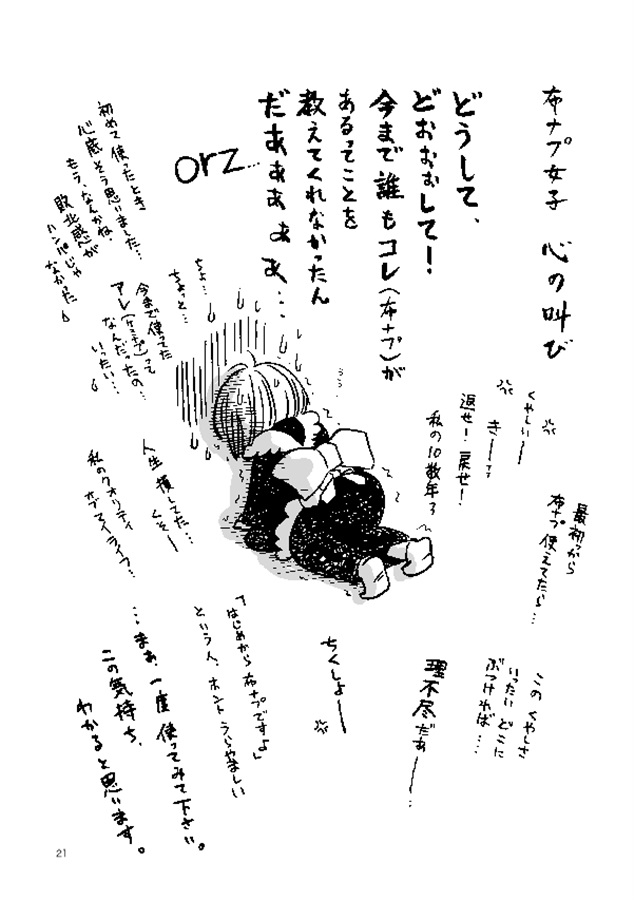 布ナプ女子 心の叫び
どうして、
どおぉぉして!
今まで誰もコレ(布ナプ)が
あるってことを
教えてくれなかったん
だあぁぁぁぁ…
orz…
初めて使ったとき
心底そう思いました…
もう、なんかね、
敗北感が
ハンパじゃ
なかった。
ちょ…
ちょっと…
今まで使ってた
アレ(ケミナプ)って
なんだったの…
いったい…
ううう…
くやしいー
きーっっ
返せ!戻せ!
私の10数年ろ
最初っから
布ナプ使えてたら…
人生損してた…
くそー
私のクオリティ
オブマイライフ…
このくやしさ
いったいどこに
ぶつければ…
理不尽だぁー…
ちくしょー
「はじめから布ナプですよ」
という人、ホントうらやましい
…まぁ、一度使ってみて下さい。
この気持ち、
わかると思います。
21